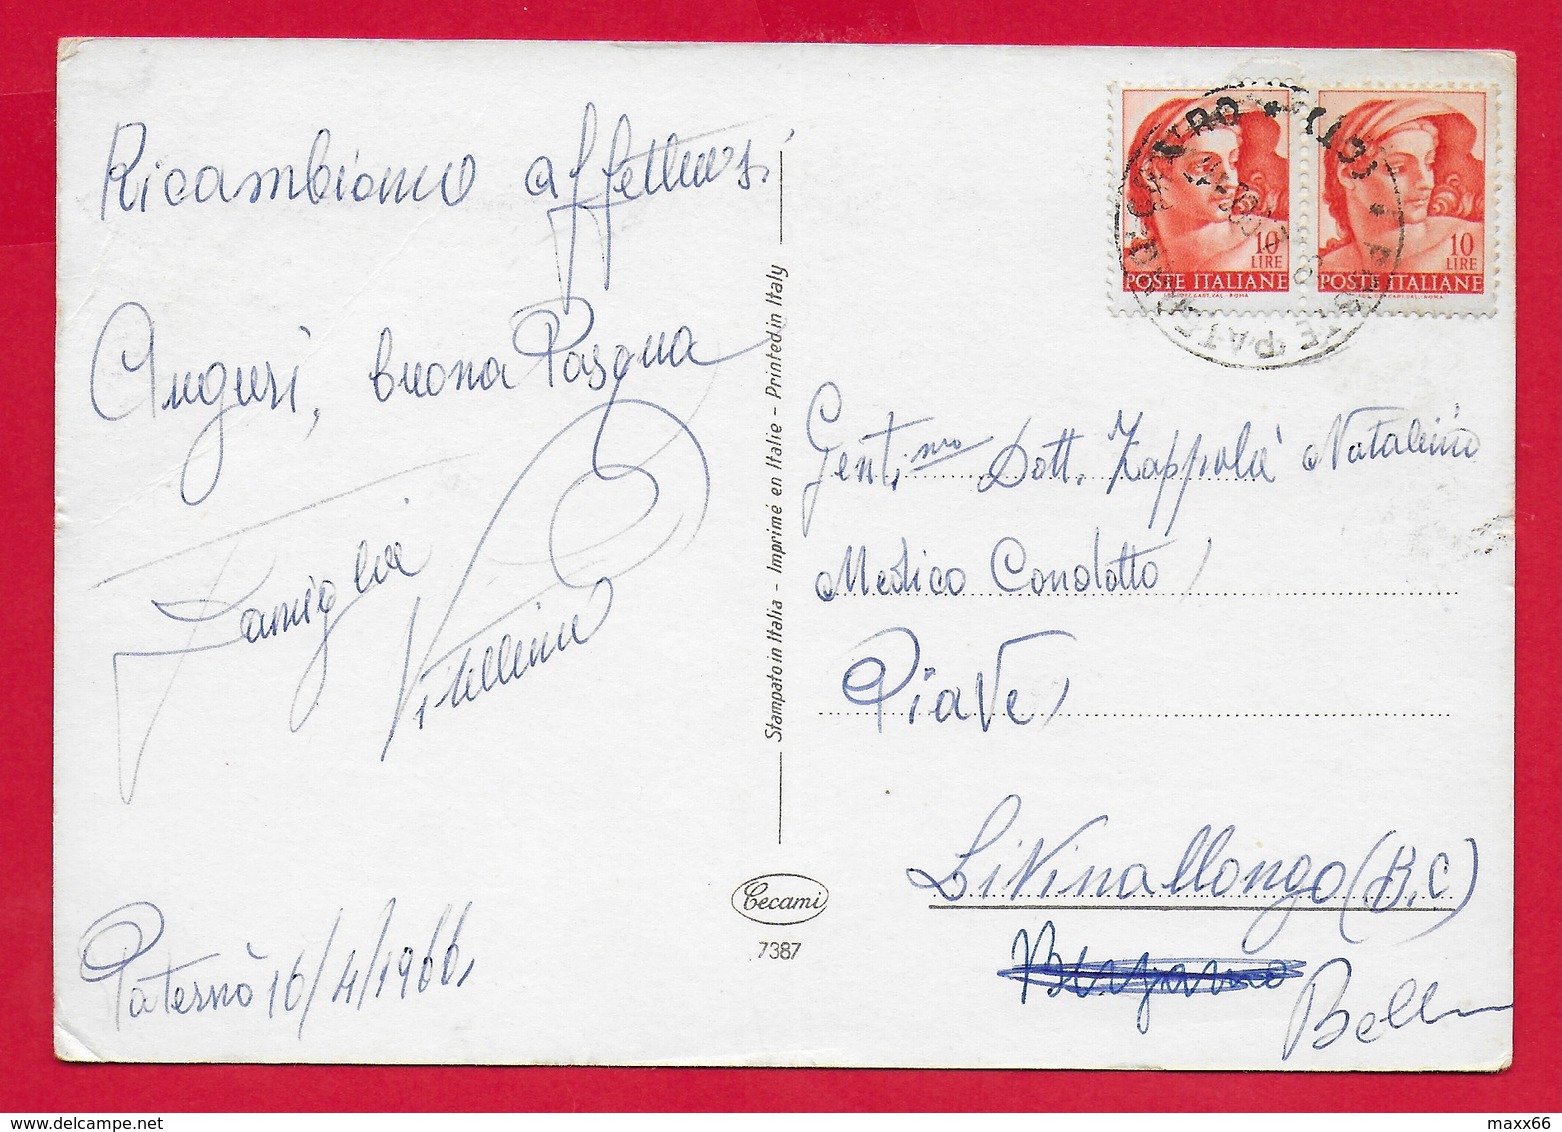 Ricambiamo affettuosi
Auguri, buona Pasqua
Famiglia
Vitellino
Paternò 16/4/1966,
Stampato in Italia - Imprimé en Italie - Printed in Italy
Cecami
7387
10
LIRE
POSTE ITALIANE
10
LIRE
POSTE ITALIANE
Gent.mo Dott. Zappolà Natalino
Medico Condotto,
Piave,
Livinallongo (B.C)
Bergamo
Bellu
maxx66